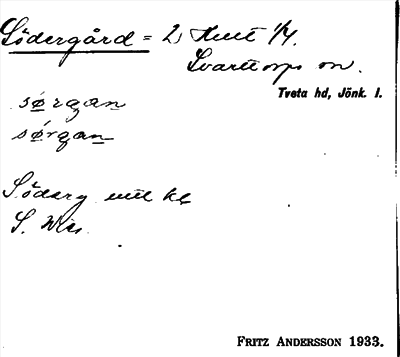 Södergård = 2, Hmt 1/4.
Svarttorps sn.
Tveta hd, Jönk. l.
sørgan
sørgan
Söderg
S.
FRITZ ANDERSSON 1933.